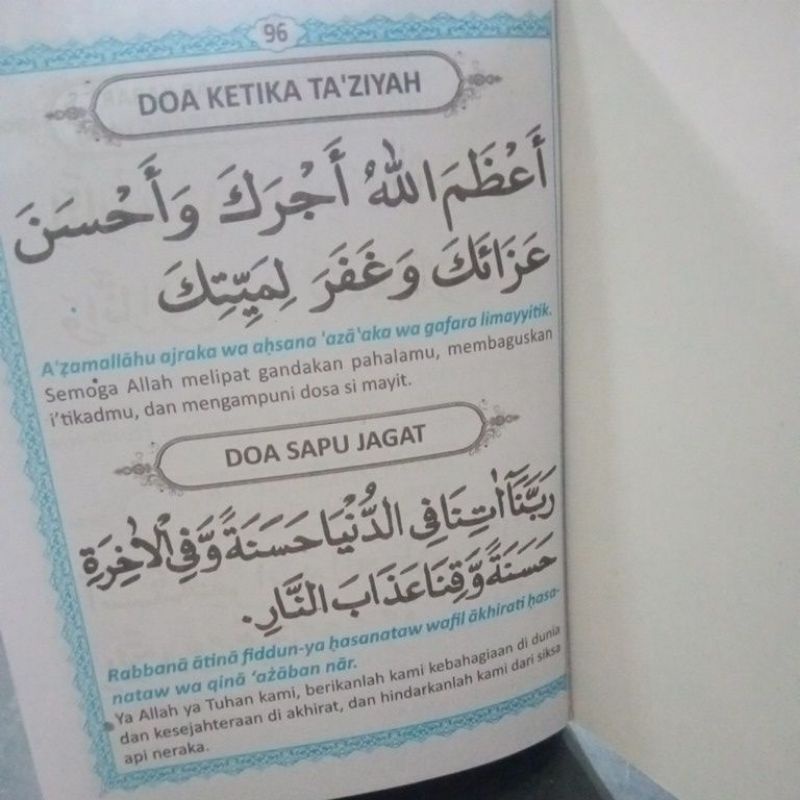 96
DOA KETIKA TA'ZIYAH
أَعْظَمَ اللهُ أَجْرَكَ وَأَحْسَنَ
عَزَائَكَ وَغَفَرَ لِمَيِّتِكَ
A'ẓamallāhu ajraka wa aḥsana 'azā'aka wa gafara limayyitik.
Semoga Allah melipat gandakan pahalamu, membaguskan
i'tikadmu, dan mengampuni dosa si mayit.
DOA SAPU JAGAT
رَبَّنَآ اٰتِنَا فِى الدُّنْيَا حَسَنَةً وَّفِى الْاٰخِرَةِ
حَسَنَةً وَّقِنَا عَذَابَ النَّارِ.
Rabbanā ātinā fiddun-ya ḥasanataw wafil ākhirati ḥasa-
nataw wa qinā 'ażāban nār.
Ya Allah ya Tuhan kami, berikanlah kami kebahagiaan di dunia
dan kesejahteraan di akhirat, dan hindarkanlah kami dari siksa
api neraka.